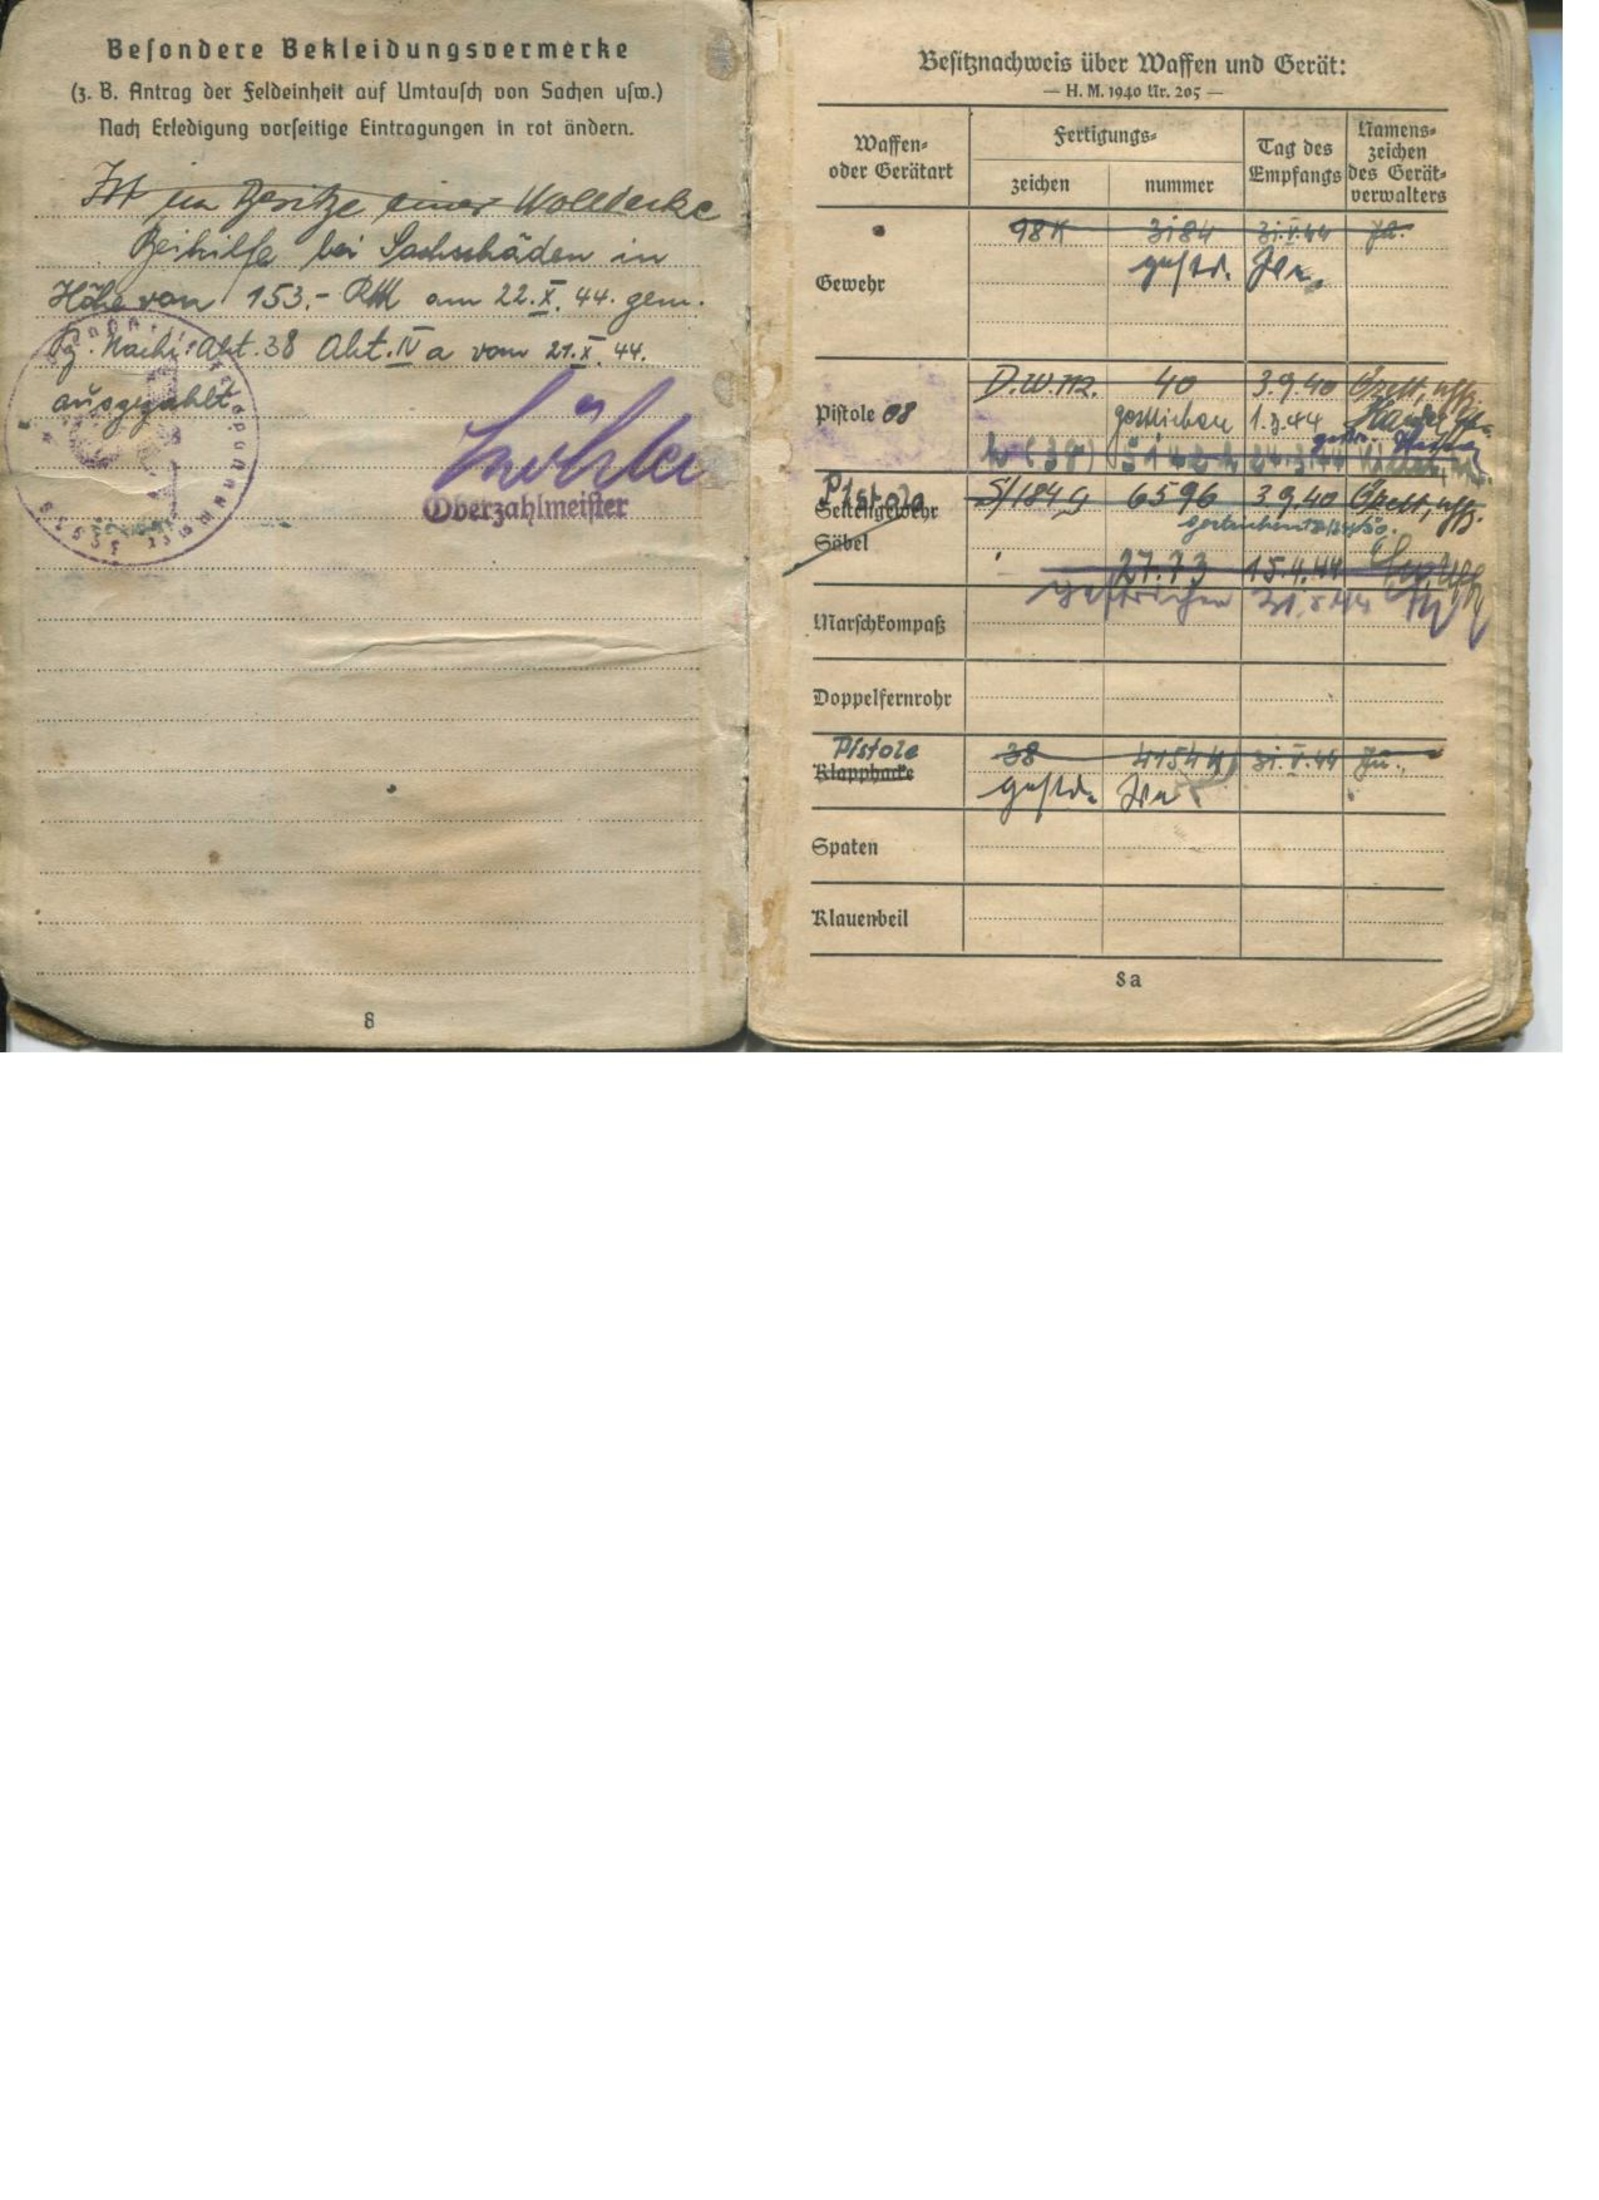 Besondere Bekleidungsvermerke
(z. B. Antrag der Feldeinheit auf Umtausch von Sachen usw.)
Nach Erledigung vorseitige Eintragungen in rot ändern.
Ist im Besitze einer Wolldecke
Beihilfe bei Sachschäden in
Höhe von 153.- RM am 22.X.44. gem.
Pz. Nachr. Abt. 38 Abt. IV a vom 21.X.44.
ausgezahlt.
Oberzahlmeister
8
Besitznachweis über Waffen und Gerät:
— H. M. 1940 Nr. 205 —
Waffen- oder Gerätart
Fertigungs-
zeichen
nummer
Tag des Empfangs
Namenszeichen des Gerätverwalters
Gewehr
98K 3184 31.V.44
gestr.
Pistole 08
D.W.M. 40 3.9.40
gestrichen 1.3.44
Pistole
Seitengewehr
S/184 G 6596 3.9.40
Säbel
27.73 15.4.44
gestrichen
Marschkompaß
Doppelfernrohr
Pistole 38 4154 31.V.44
Klapphacke
gestr.
Spaten
Klauenbeil
8a